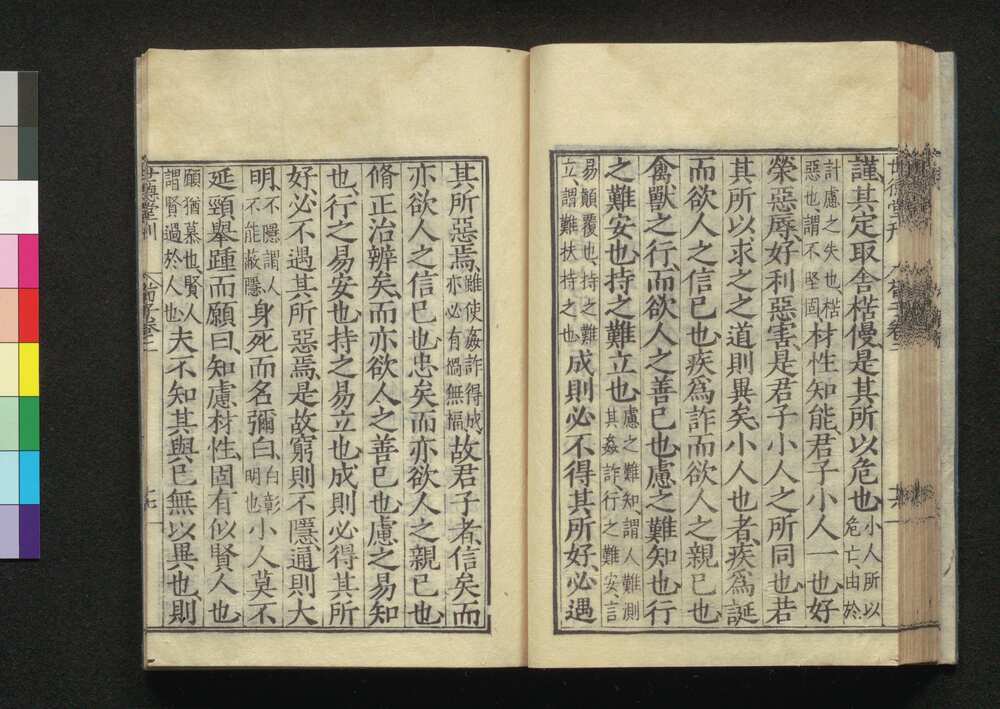 謹其定取舍楛僈是其所以危也小人所以危亡由於
計慮之失也楛惡也謂不堅固材性知能君子小人一也好
榮惡辱好利惡害是君子小人之所同也若
其所以求之之道則異矣小人也者疾爲誕
而欲人之信己也疾爲詐而欲人之親己也
禽獸之行而欲人之善己也慮之難知也行
之難安也持之難立也慮之難知謂人難測其姦詐行之難安言
易顛覆也持之難立謂難扶持之也成則必不得其所好必遇
其所惡焉雖使姦詐得成亦必有禍無福故君子者信矣而
亦欲人之信己也忠矣而亦欲人之親己也
脩正治辨矣而亦欲人之善己也慮之易知
也行之易安也持之易立也成則必得其所
好必不遇其所惡焉是故窮則不隱通則大
明不隱謂人不能蔽隱身死而名彌白白彰明也小人莫不
延頸舉踵而願曰知慮材性固有似賢人也
願猶慕也賢人謂賢過於人也夫不知其與己無以異也則
世德堂刊
荀子卷二
十九